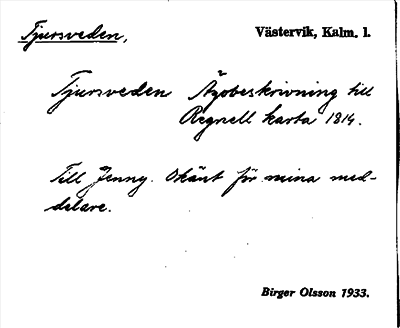 Tjursveden,
Västervik, Kalm. l.
Tjursveden Ägobeskrivning till
Regnell karta 1814.
Till Jenny. Okänt för mina med-
delare.
Birger Olsson 1933.